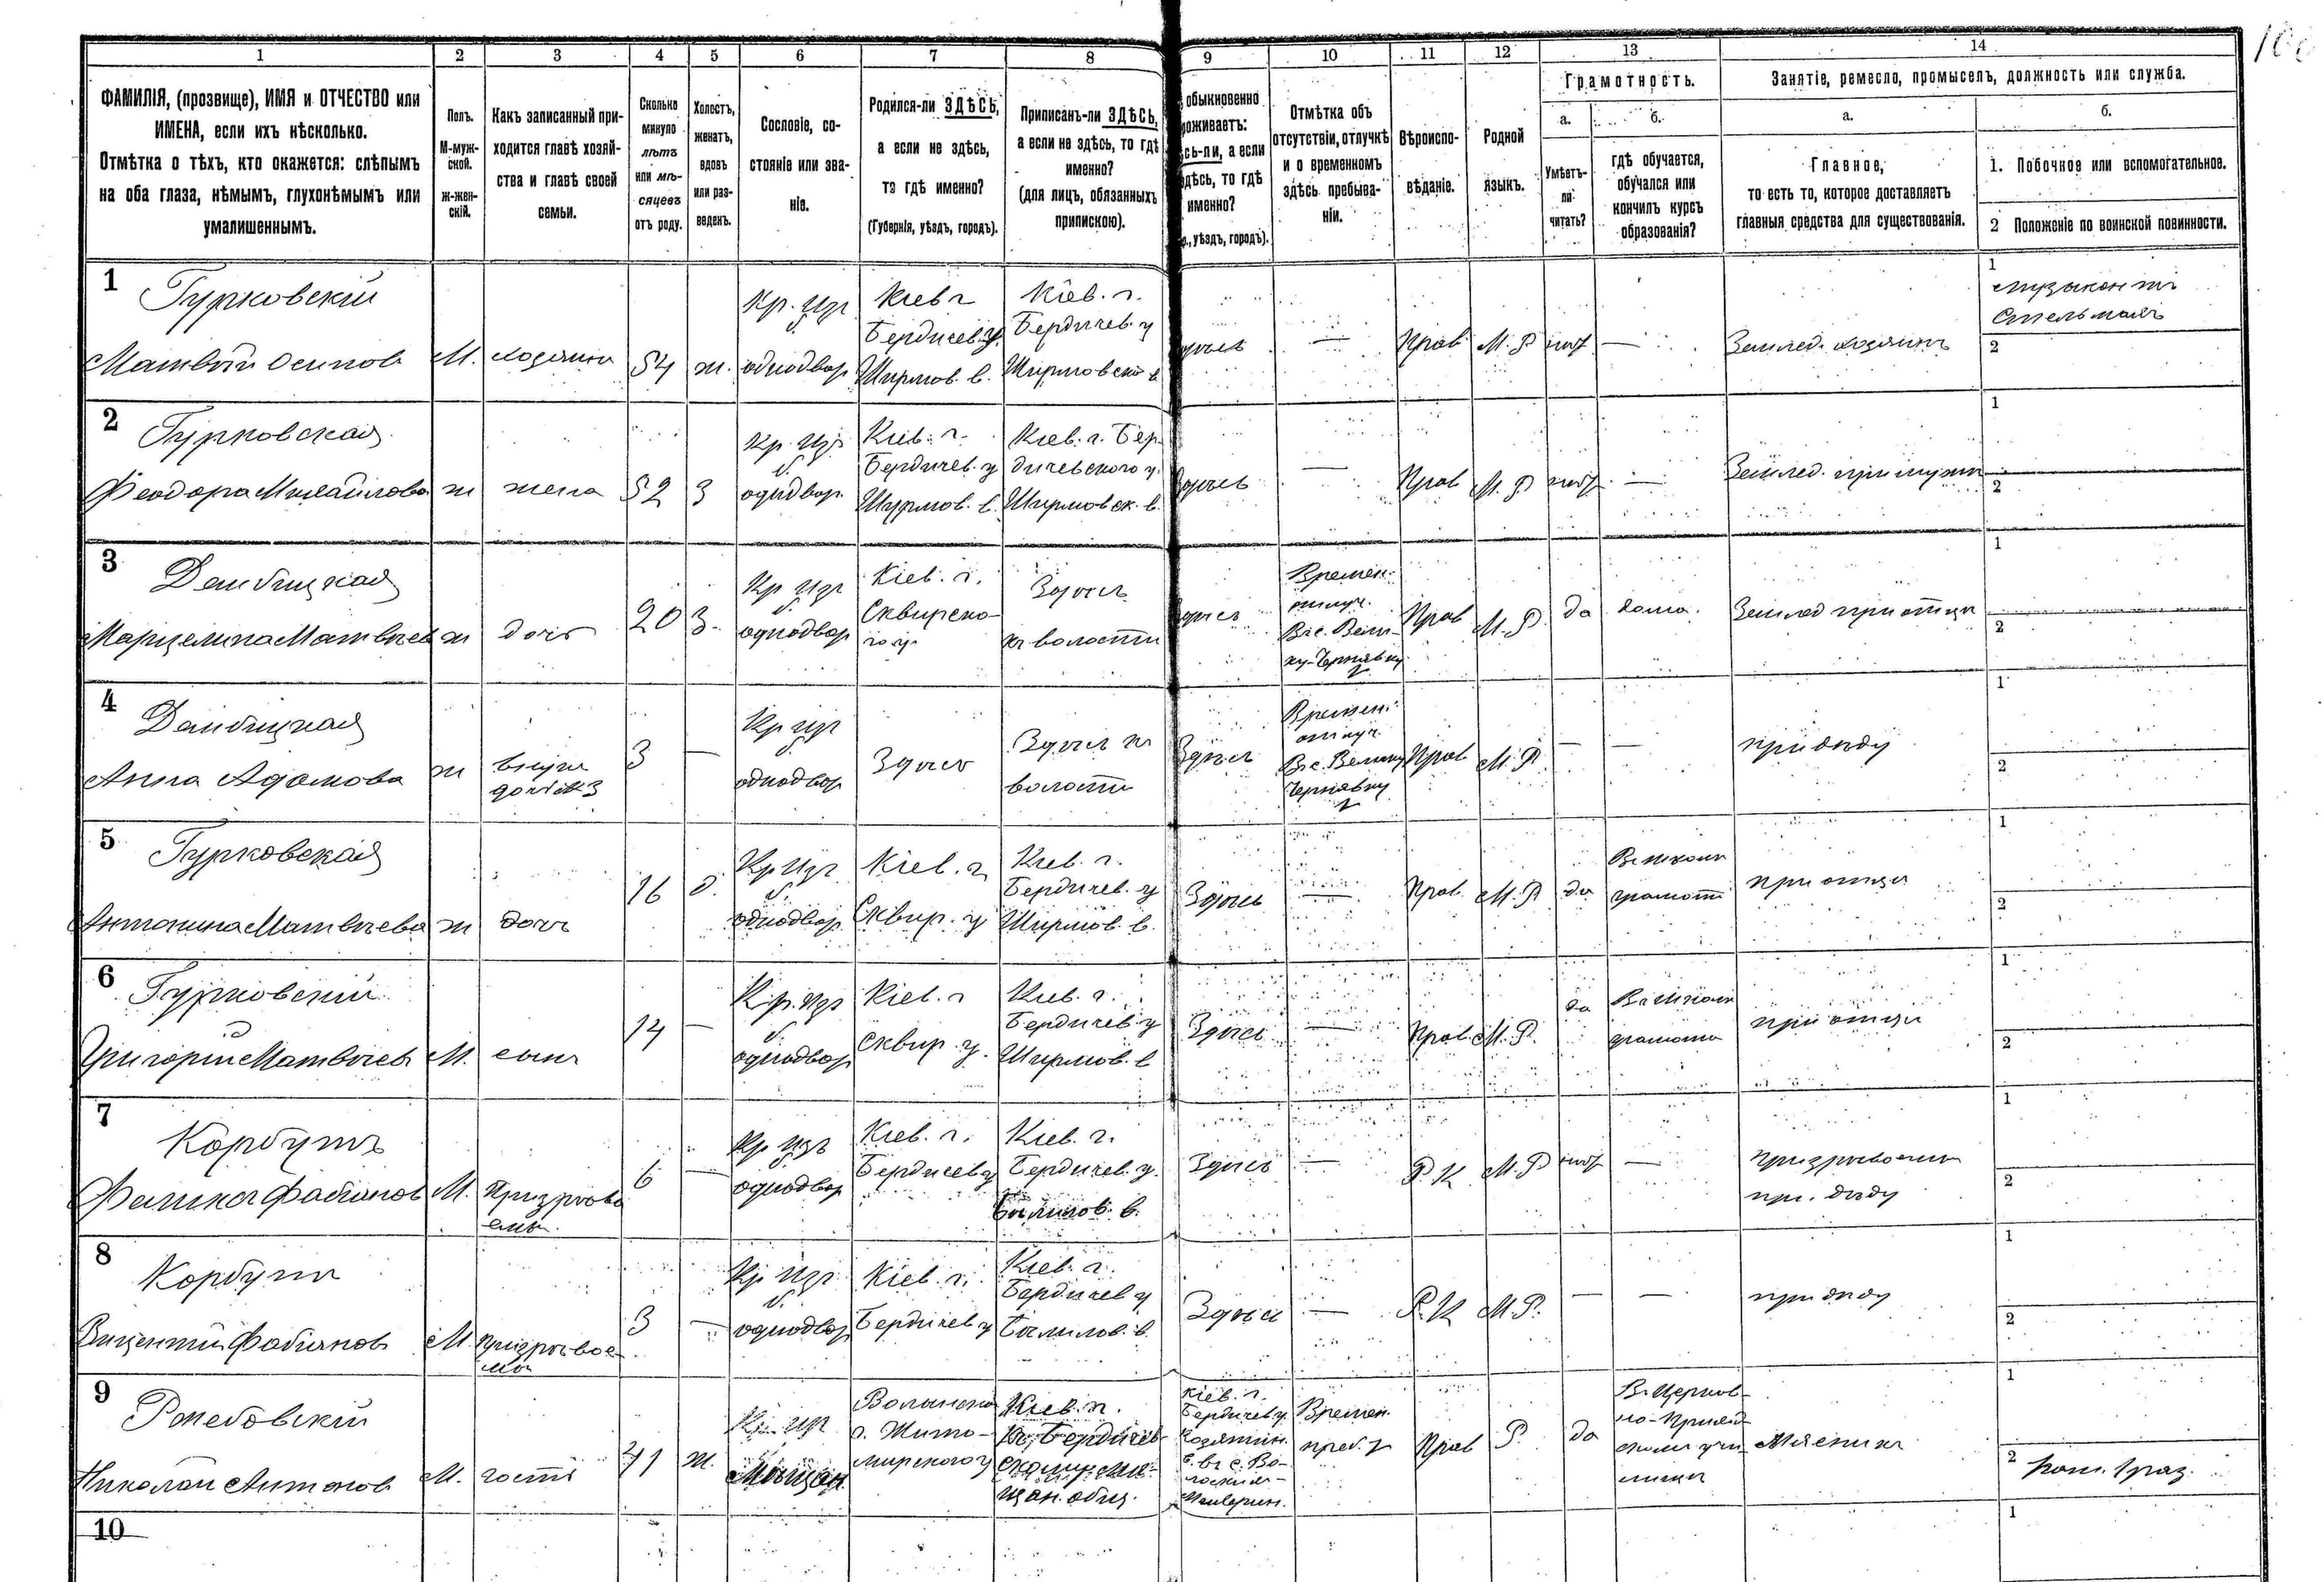 1 2 3 4 5 6 7 8 9 10 11 12 13 14
ФАМИЛІЯ, (прозвище), ИМЯ и ОТЧЕСТВО или
ИМЕНА, если ихъ нѣсколько.
Отмѣтка о тѣхъ, кто окажется: слѣпымъ
на оба глаза, нѣмымъ, глухонѣмымъ или
умалишеннымъ.
Полъ.
М-муж-
ской.
ж-жен-
скій.
Какъ записанный при-
ходится главѣ хозяй-
ства и главѣ своей
семьи.
Сколько
минуло
лѣтъ
или мѣ-
сяцевъ
отъ роду.
Холостъ,
женатъ,
вдовъ
или раз-
веденъ.
Сословіе, со-
стояніе или зва-
ніе.
Родился-ли ЗДѢСЬ,
а если не здѣсь,
то гдѣ именно?
(Губернія, уѣздъ, городъ).
Приписанъ-ли ЗДѢСЬ,
а если не здѣсь, то гдѣ
именно?
(для лицъ, обязанныхъ
припискою).
обыкновенно
роживаетъ:
сь-ли, а если
дѣсь, то гдѣ
именно?
уѣздъ, городъ).
Отмѣтка объ
отсутствіи, отлучкѣ
и о временномъ
здѣсь пребыва-
ніи.
Вѣроиспо-
вѣданіе.
Родной
языкъ.
Грамотность.
а. б.
Умѣетъ-
ли
читать?
гдѣ обучается,
обучался или
кончилъ курсъ
образованія?
Занятіе, ремесло, промыселъ, должность или служба.
а. б.
Главное,
то есть то, которое доставляетъ
главныя средства для существованія.
1. Побочное или вспомогательное.
2 Положеніе по воинской повинности.
1
Гурковскій
Матвѣй Осиповъ
М.
хозяинъ
54
ж.
Кр. изъ
б.
однодвор
Кіев г
Бердичев. у.
Ширмов. в.
Кіев. г.
Бердичев. у
Ширмовской в
Здѣсь
—
Прав
М. Р
нѣт
—
Землед. хозяинъ
1
музыкантъ
Стельмахъ
2
2
Гурковская
Феодора Михайлова
ж
жена
52
З
Кр. изъ
б.
однодвор.
Кіев. г.
Бердичев. у
Ширмов. в.
Кіев. г. Бер
дичевского у.
Ширмовск. в.
Здѣсь
—
Прав
М. Р
нѣт.
—
Землед. при мужѣ
1
2
3
Марцелина Матвѣева
ж
дочь
20
З.
Кр изъ
б.
однодвор
Кіев. г.
Сквирско-
го у.
Здѣсь
къ волости
Здѣсь
Времен.
отлуч.
Прав
М. Р.
да
дома.
Землед при отцѣ
1
2
4
Анна Адамова
ж
внучка
дочь №3
3
—
Кр изъ
б.
однодвор
Здѣсь
Здѣсь къ
волости
Здѣсь
Времен.
отлуч.
Прав
М. Р.
—
—
при дѣду
1
2
5
Гурковская
Антонина Матвѣева
ж
дочь
16
д.
Кр изъ
б.
однодвор.
Кіев. г.
Сквир. у
Кіев. г.
Бердичев. у
Ширмов. в.
Здѣсь
—
Прав.
М. Р
да
Въ школѣ
грамоты
при отцѣ
1
2
6
Гурковскій
Григорій Матвѣевъ
М.
сынъ
14
—
Кр. изъ
б.
однодвор
Кіев. г
Сквир. у.
Кіев. г.
Бердичев. у
Ширмов. в
Здѣсь
—
Прав.
М. Р.
да
Въ школѣ
грамоты
при отцѣ
1
2
7
Корбутъ
Фабіанов
М.
6
—
Кр изъ
б.
однодвор
Кіев. г.
Бердичев у
Кіев. г.
Бердичев. у.
Здѣсь
—
Р. К
М. Р
нѣт
—
при. дѣду
1
2
8
Корбутъ
Вицентій Фабіановъ
М.
3
—
Кр изъ
б.
однодвор
Кіев. г.
Бердичев у
Кіев. г.
Бердичев у
Здѣсь
—
Р. К
М. Р.
—
—
при дѣду
1
2
9
Николай Антоновъ
М.
гость
41
ж.
Кр. изъ
Мѣщан.
Волынско
г. Жито-
мирского у
Кіев. г.
Бердичев
щан. общ.
Кіев. г.
Бердичев у.
Времен.
преб.
Прав
Р.
да
Въ Церков
но-Приход
1
2
10
1